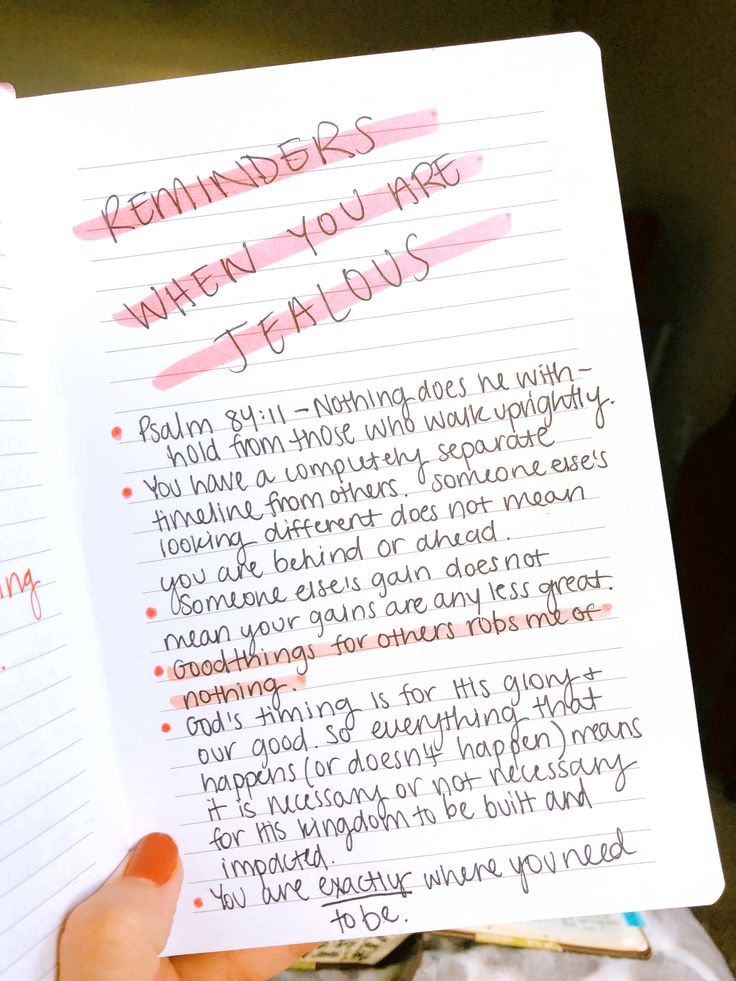 REMINDERS
WHEN YOU ARE
JEALOUS
• Psalm 84:11 – Nothing does he with-
hold from those who walk uprightly.
• You have a completely separate
timeline from others. Someone else's
looking different does not mean
you are behind or ahead.
• Someone else's gain does not
mean your gains are any less great.
• Good things for others robs me of
nothing.
• God's timing is for His glory +
our good. So everything that
happens (or doesn't happen) means
it is necessary or not necessary
for His kingdom to be built and
impacted.
• You are exactly where you need
to be.
ng